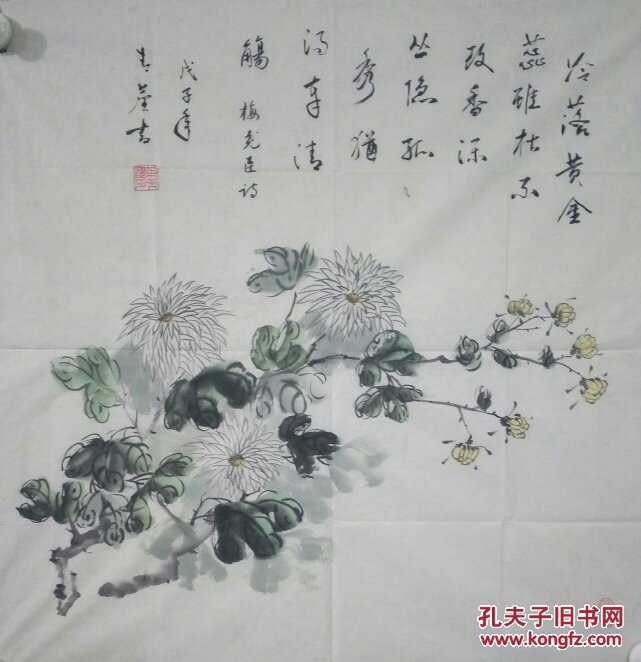 冷落黄金
蕊雖枯不
改香深
丛隐孤
秀猶
得奉清
觴 梅尧臣诗
戊子年
书
孔夫子旧书网
www.kongfz.com